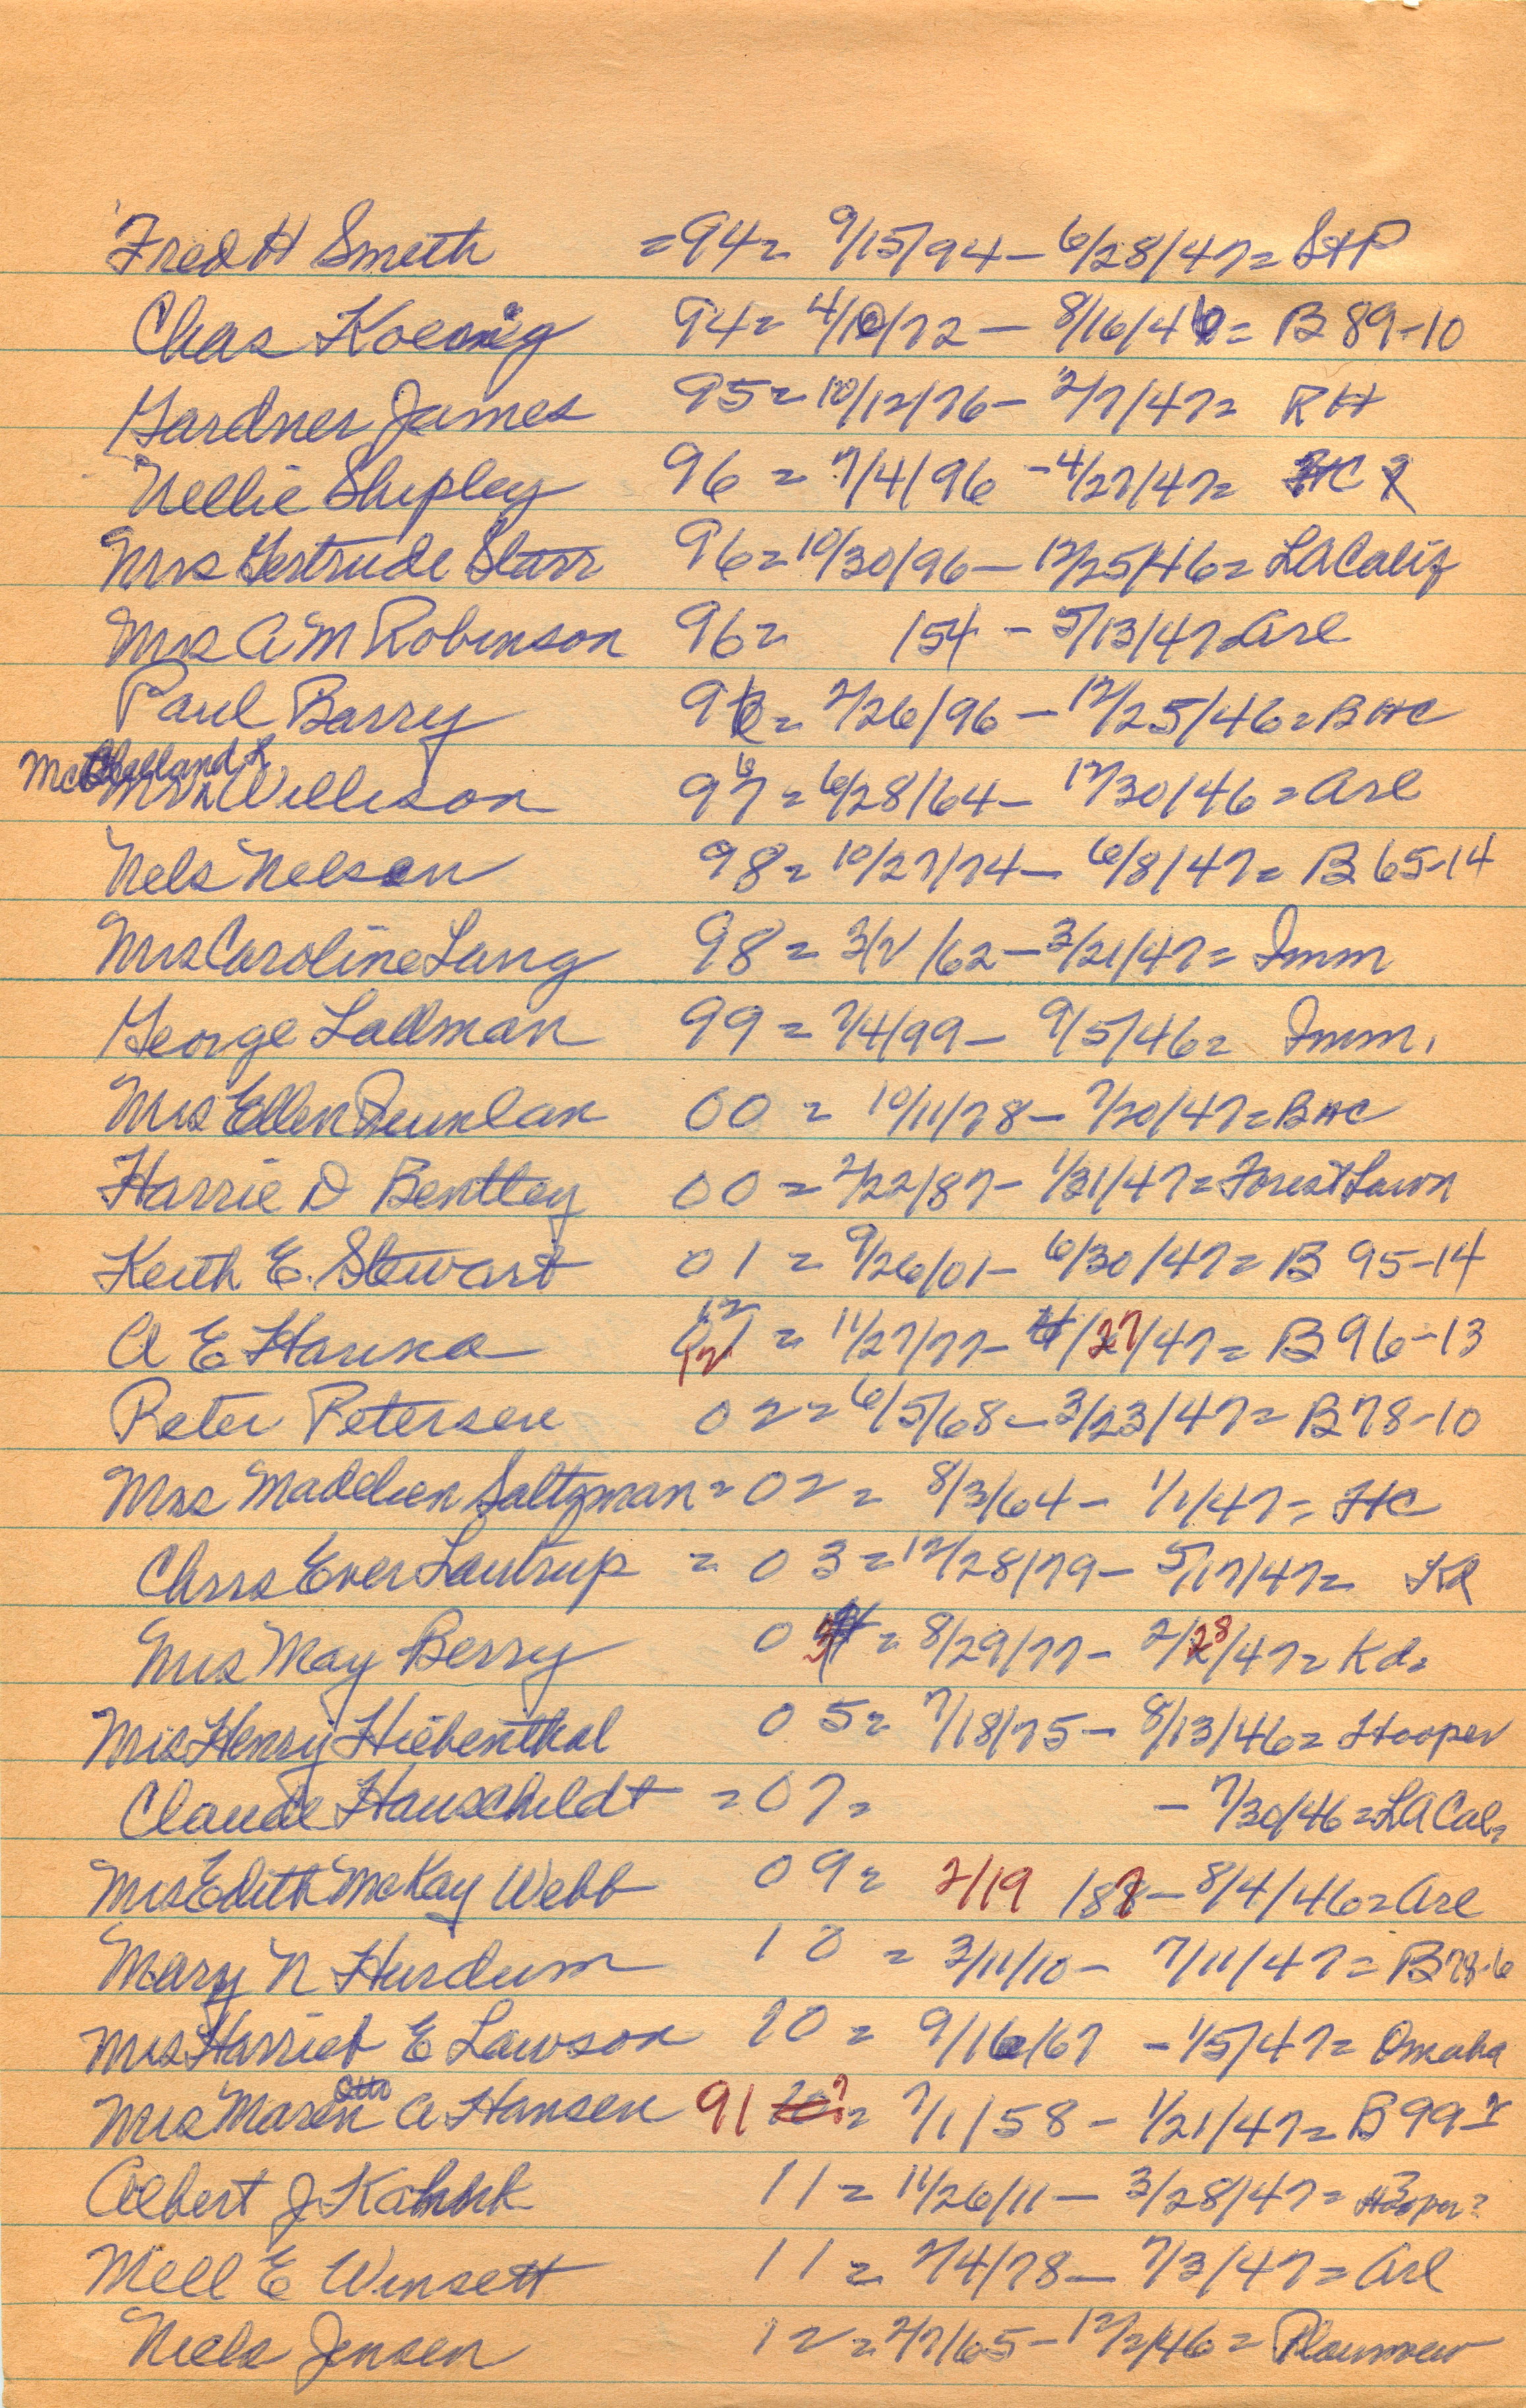 Fred H Smith = 94 = 9/15/94 - 6/28/47 = StP
Chas Koenig 94 = 4/10/72 - 8/16/46 = B 89-10
Gardner James 95 = 10/12/76 - 2/7/47 = RH
Nellie Shipley 96 = 7/4/96 - 4/27/47 =
Mrs Gertrude Starr 96 = 10/30/96 - 12/25/46 = LA Calif
Mrs A M Robinson 96 = /54 - 5/13/47 = Arl
Paul Barry 96 = 2/26/96 - 12/25/46 = BHC
McClelland L
Willison 97 = 6/28/64 - 12/30/46 = Arl
Nels Nelson 98 = 10/27/74 - 6/8/47 = B 65-14
Mrs Caroline Lang 98 = 3/2/62 - 3/21/47 = Imm
George Lallman 99 = 7/4/99 - 9/5/46 = Imm.
Mrs Ellen 00 = 10/11/78 - 7/20/47 = BHC
Harrie D Bentley 00 = 2/22/87 - 1/31/47 = Forest Lawn
Keith E. Stewart 01 = 9/26/01 - 6/30/47 = B 95-14
A E Hanka 12 = 11/27/77 - /27/47 = B 96-13
Peter Petersen 02 = 6/5/68 - 3/23/47 = B 78-10
Mrs Madelien Saltzman = 02 = 8/3/64 - 1/1/47 = HC
Chris Ever Lautrup = 03 = 12/28/79 - 5/17/47 = Kd
Mrs May Berry 0 = 8/29/77 - 2/28/47 = Kd.
Mrs Henry Hiebenthal 05 = 7/18/75 - 8/13/46 = Hooper
Claude Hauschildt = 07 = - 7/30/46 = LA Cal.
Mrs Edith McKay Webb 09 = 2/19 /87 - 8/4/46 = Arl
Mary N Hurdum 10 = 3/11/10 - 7/11/47 = B 78-6
Mrs Harriet E Lawson 10 = 9/16/67 - 1/5/47 = Omaha
Otto
Mrs Maren A Hansen 91 = 7/1/58 - 1/21/47 = B 99
Albert J 11 = 11/26/11 - 3/28/47 = Hooper?
Mell E Winsett 11 = 7/4/78 - 7/3/47 = Arl
Niels Jensen 12 = 2/7/65 - 12/2/46 = Plainview